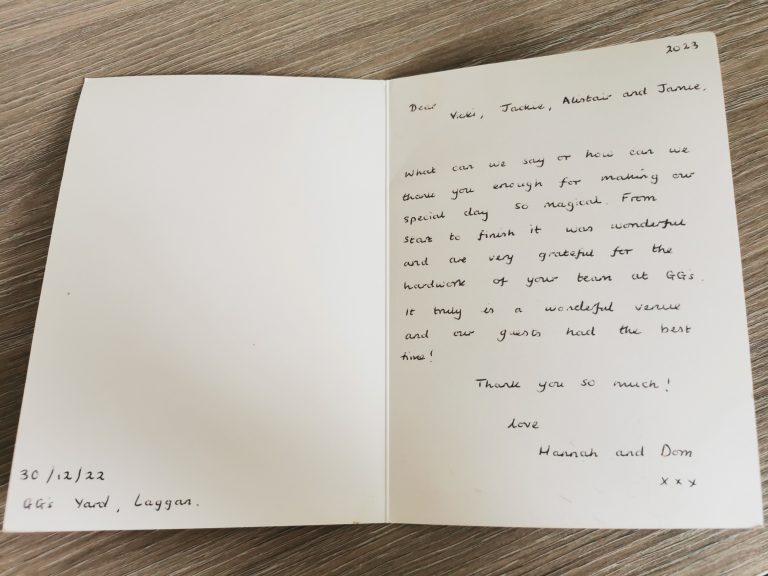 30/12/22
GG's Yard, Laggan.
2023
Dear Vicki, Jackie, Alistair and Jamie,
What can we say or how can we
thank you enough for making our
special day so magical. From
start to finish it was wonderful
and are very grateful for the
hardwork of your team at GG's.
It truly is a wonderful venue
and our guests had the best
time!
Thank you so much!
love
Hannah and Dom
x x x